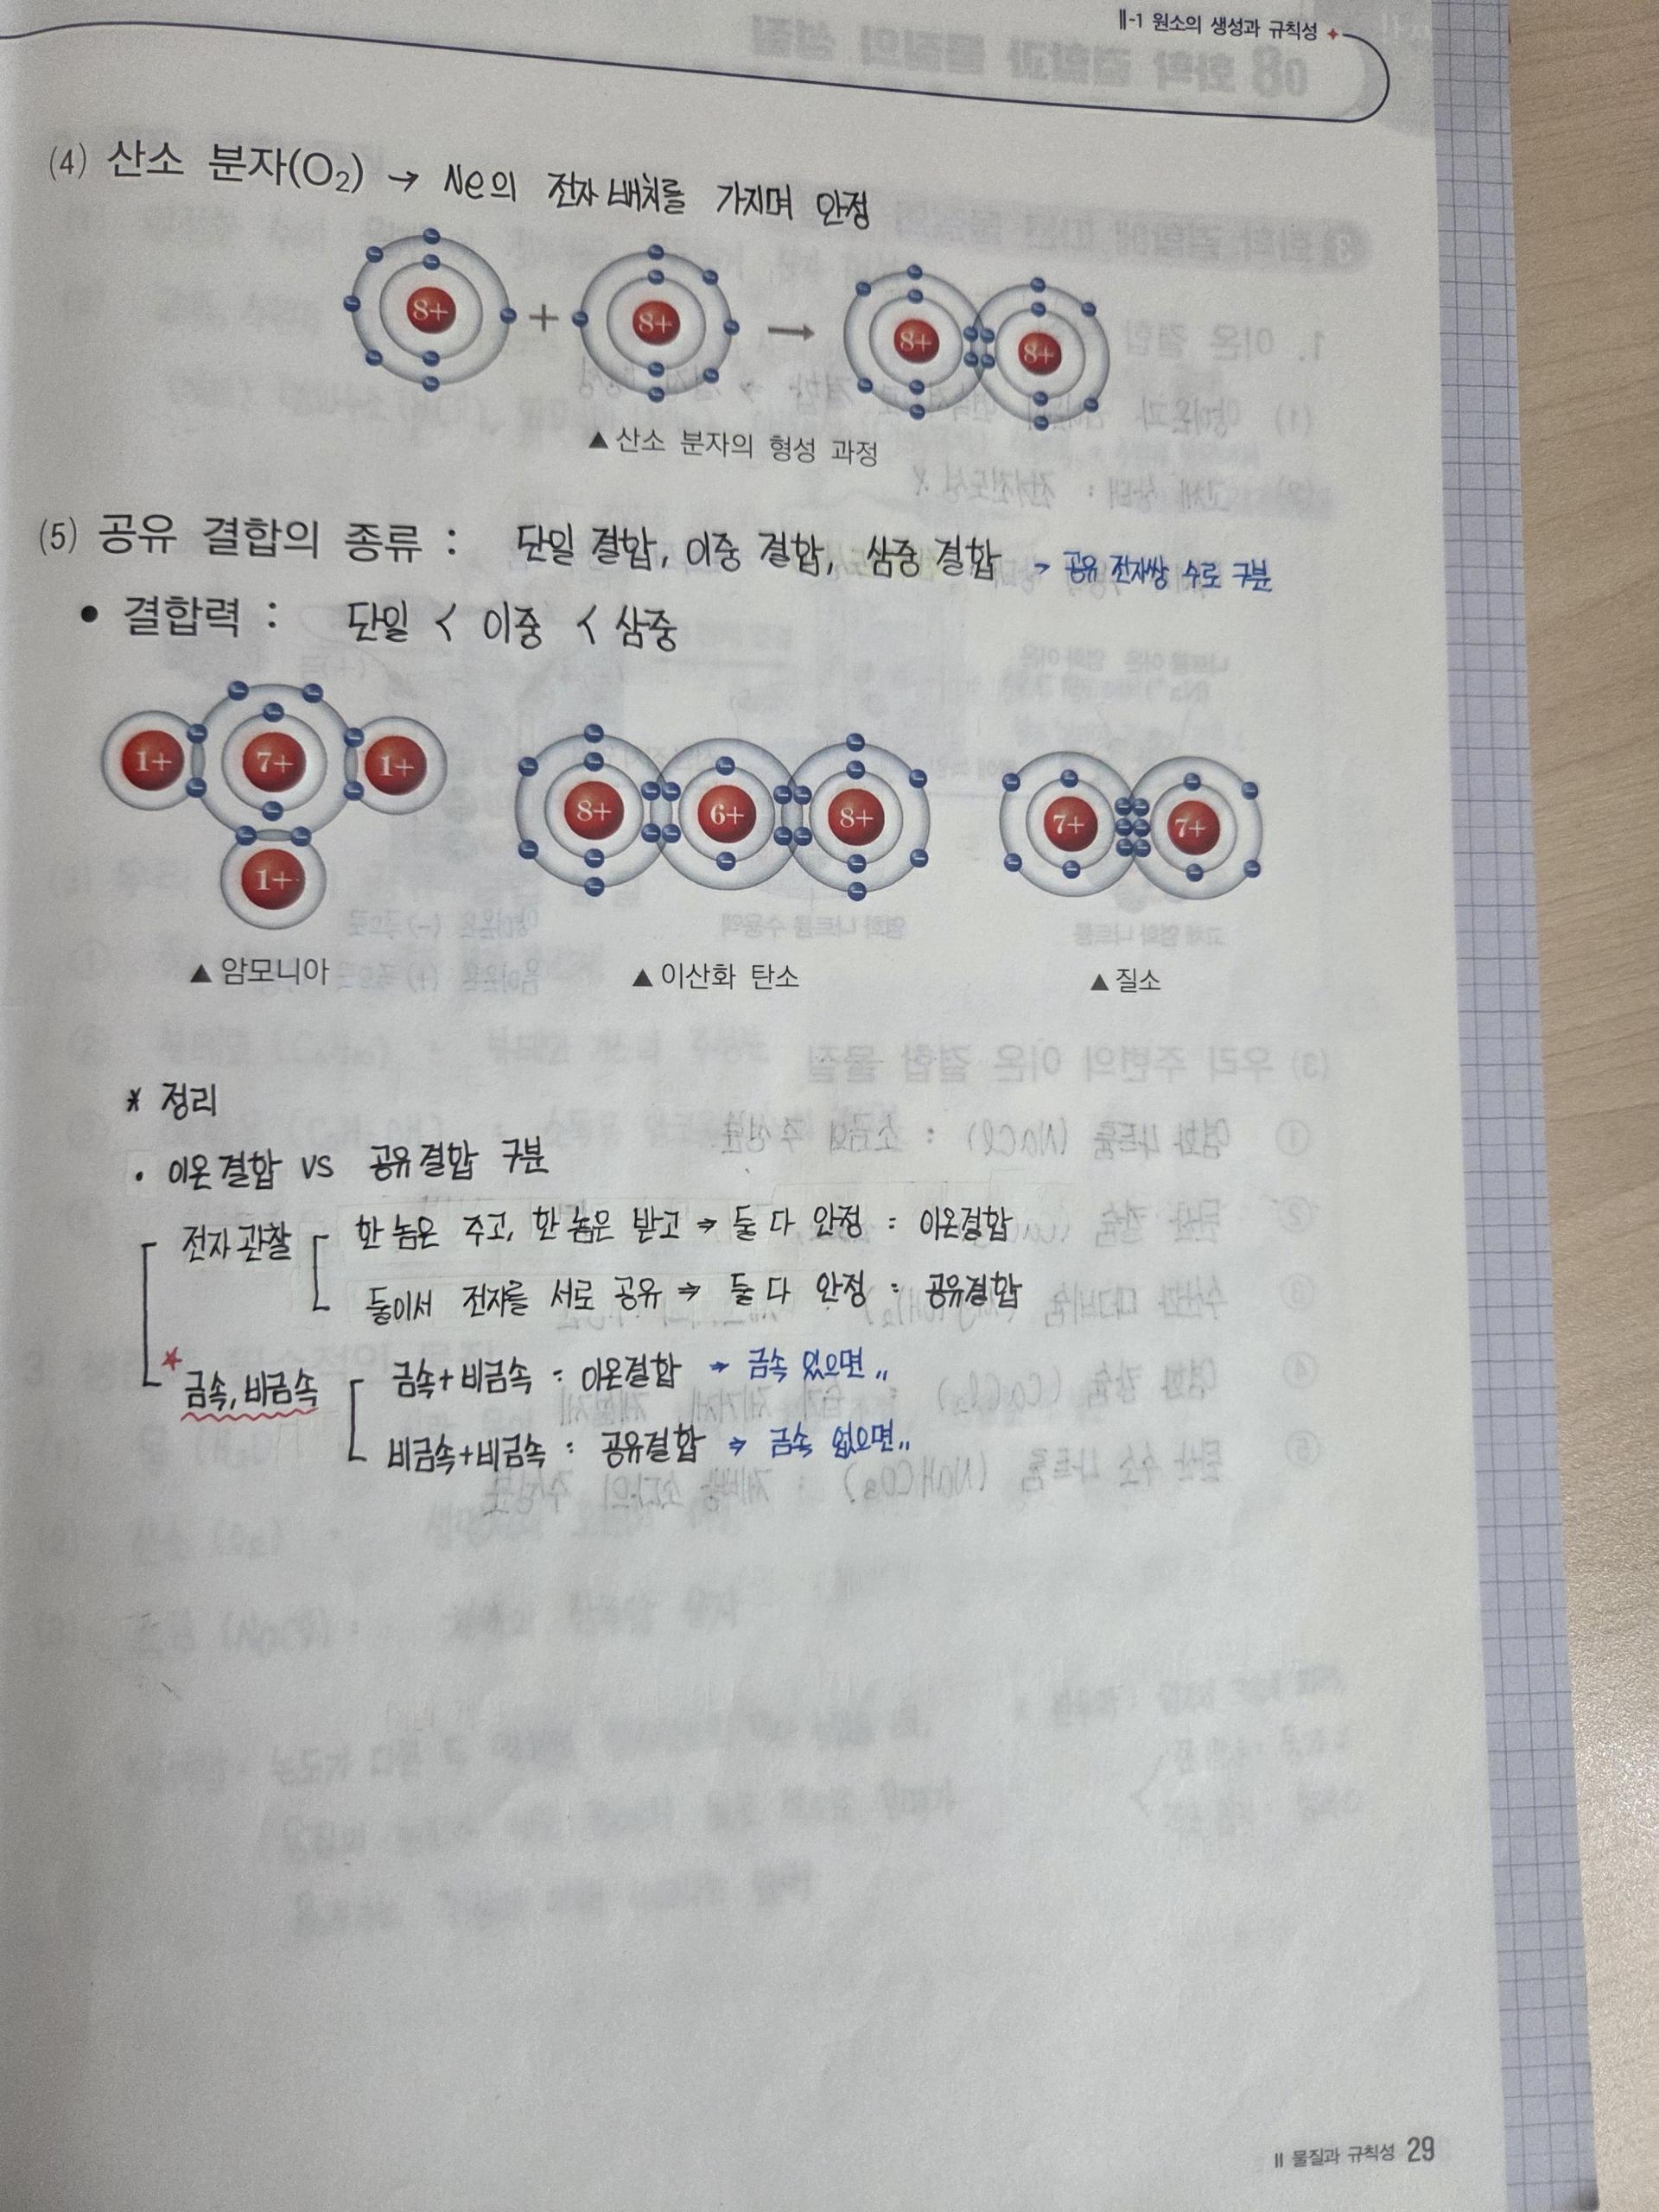 Ⅱ-1 원소의 생성과 규칙성
(4) 산소 분자(O₂) → Ne의 전자 배치를 가지며 안정
8+ + 8+ → 8+ 8+
▲ 산소 분자의 형성 과정
(5) 공유 결합의 종류 : 단일 결합, 이중 결합, 삼중 결합 → 공유 전자쌍 수로 구분
• 결합력 : 단일 < 이중 < 삼중
1+ 7+ 1+ 8+ 6+ 8+ 7+ 7+
1+
▲ 암모니아 ▲ 이산화 탄소 ▲ 질소
* 정리
• 이온결합 VS 공유결합 구분
전자 관찰 한 놈은 주고, 한 놈은 받고 ⇒ 둘 다 안정 : 이온결합
둘이서 전자를 서로 공유 ⇒ 둘 다 안정 : 공유결합
★ 금속, 비금속 금속+비금속 : 이온결합 ⇒ 금속 있으면 〃
비금속+비금속 : 공유결합 ⇒ 금속 없으면 〃
Ⅱ 물질과 규칙성 29